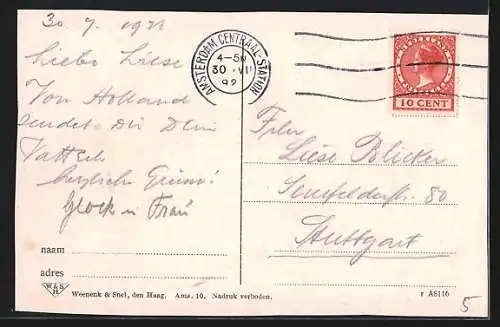 30 7 1929
Liebe Liese
Von Holland
sendet Dir Dein
herzliche Grüsse!
Glock u Frau
AMSTERDAM CENTRAAL-STATION
30 VII
NEDERLAND
10 CENT
Frln
Liese Blicker
80
Stuttgart
naam
adres
W & S
H
Weenenk & Snel, den Haag. Ams. 10. Nadruk verboden.
r A8116
5